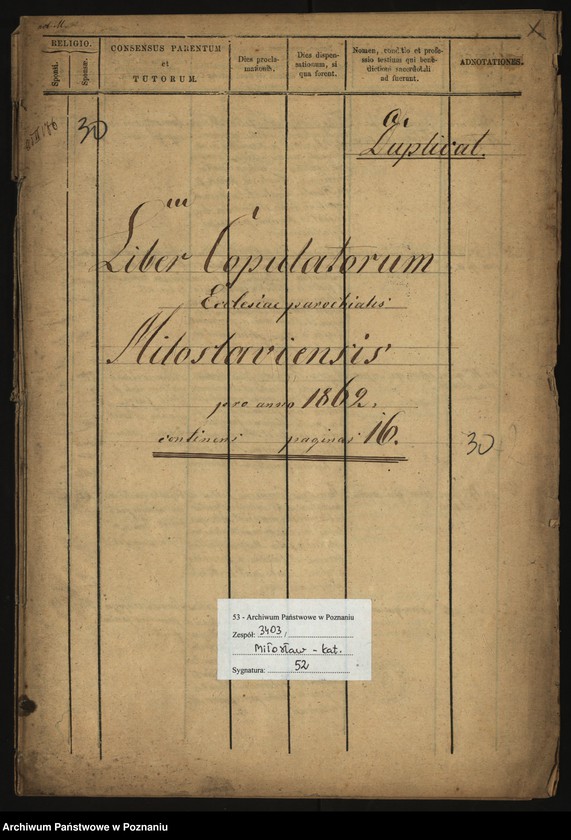 RELIGIO.
Sponsi.
Sponsae.
CONSENSUS PARENTUM
et
TUTORUM.
Dies procla-
mationis.
Dies dispen-
sationum, si
qua forent.
Nomen, conditio et profes-
sio testium qui bene-
dictioni sacerdotali
ad fuerunt.
ADNOTATIONES.
X
30
a.
Duplicat.
Liber Copulatorum
Ecclesiae parochialis
Miloslaviensis
pro anno 1862,
continens paginas 16.
30
53 - Archiwum Państwowe w Poznaniu
Zespół: 3403 /
Miłosław - kat.
Sygnatura: 52
Archiwum Państwowe w Poznaniu